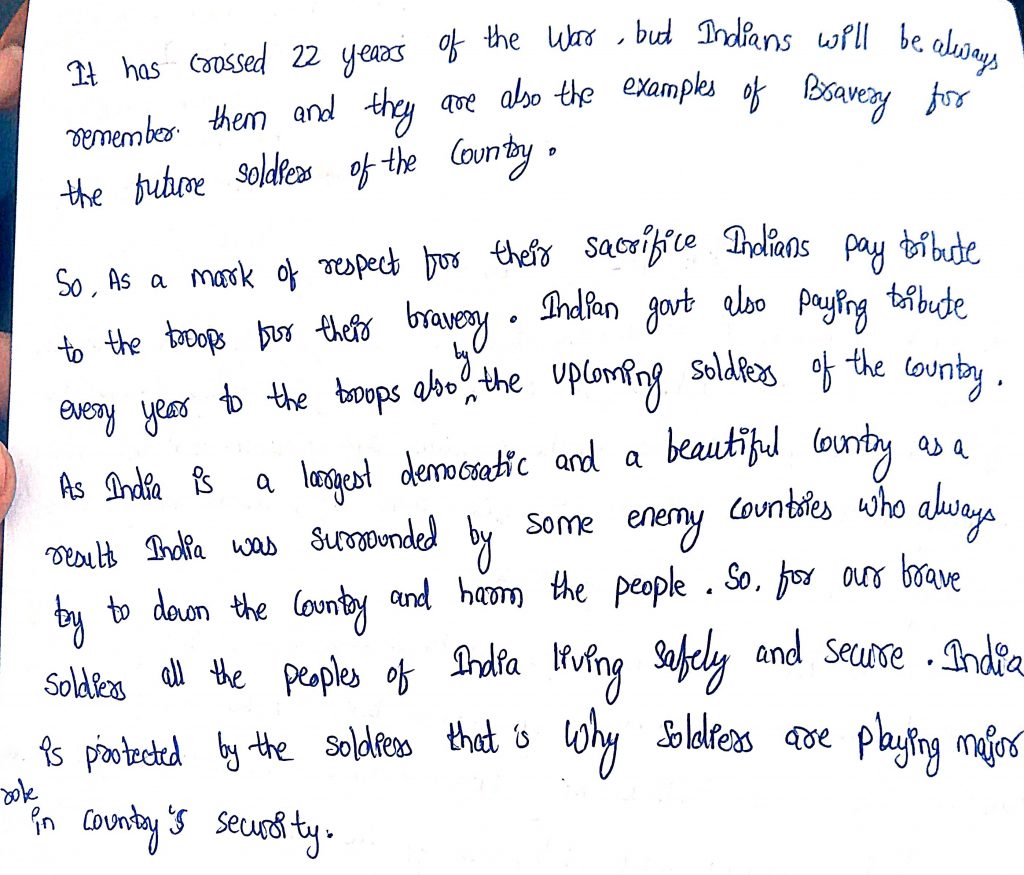 It has crossed 22 years of the War, but Indians will be always
remember. them and they are also the examples of Bravery for
the future soldiers of the Country.
So, As a mark of respect for their sacrifice Indians pay tribute
to the troops for their bravery. Indian govt also paying tribute
every year to the troops also by the upcoming soldiers of the country.
As India is a largest democratic and a beautiful Country as a
results India was surrounded by some enemy countries who always
try to down the Country and harm the people. So, for our brave
soldiers all the peoples of India living safely and secure. India
is protected by the soldiers that is why Soldiers are playing major
role
in country's security.